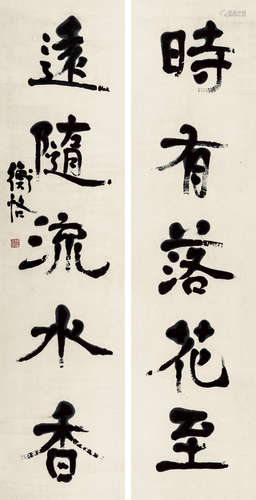 時有落花至
遠隨流水香
衡恪